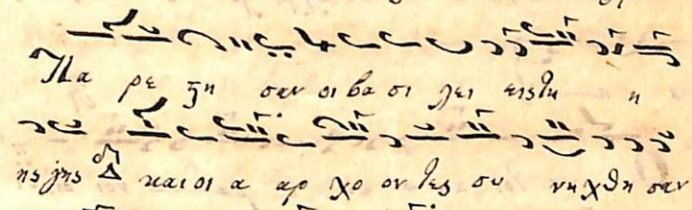 Πα ρε ςη σαν οι βα σι λει ειςτη η
ης γης Δ και οι α αρ χο ον τες συ νη χθη σαν